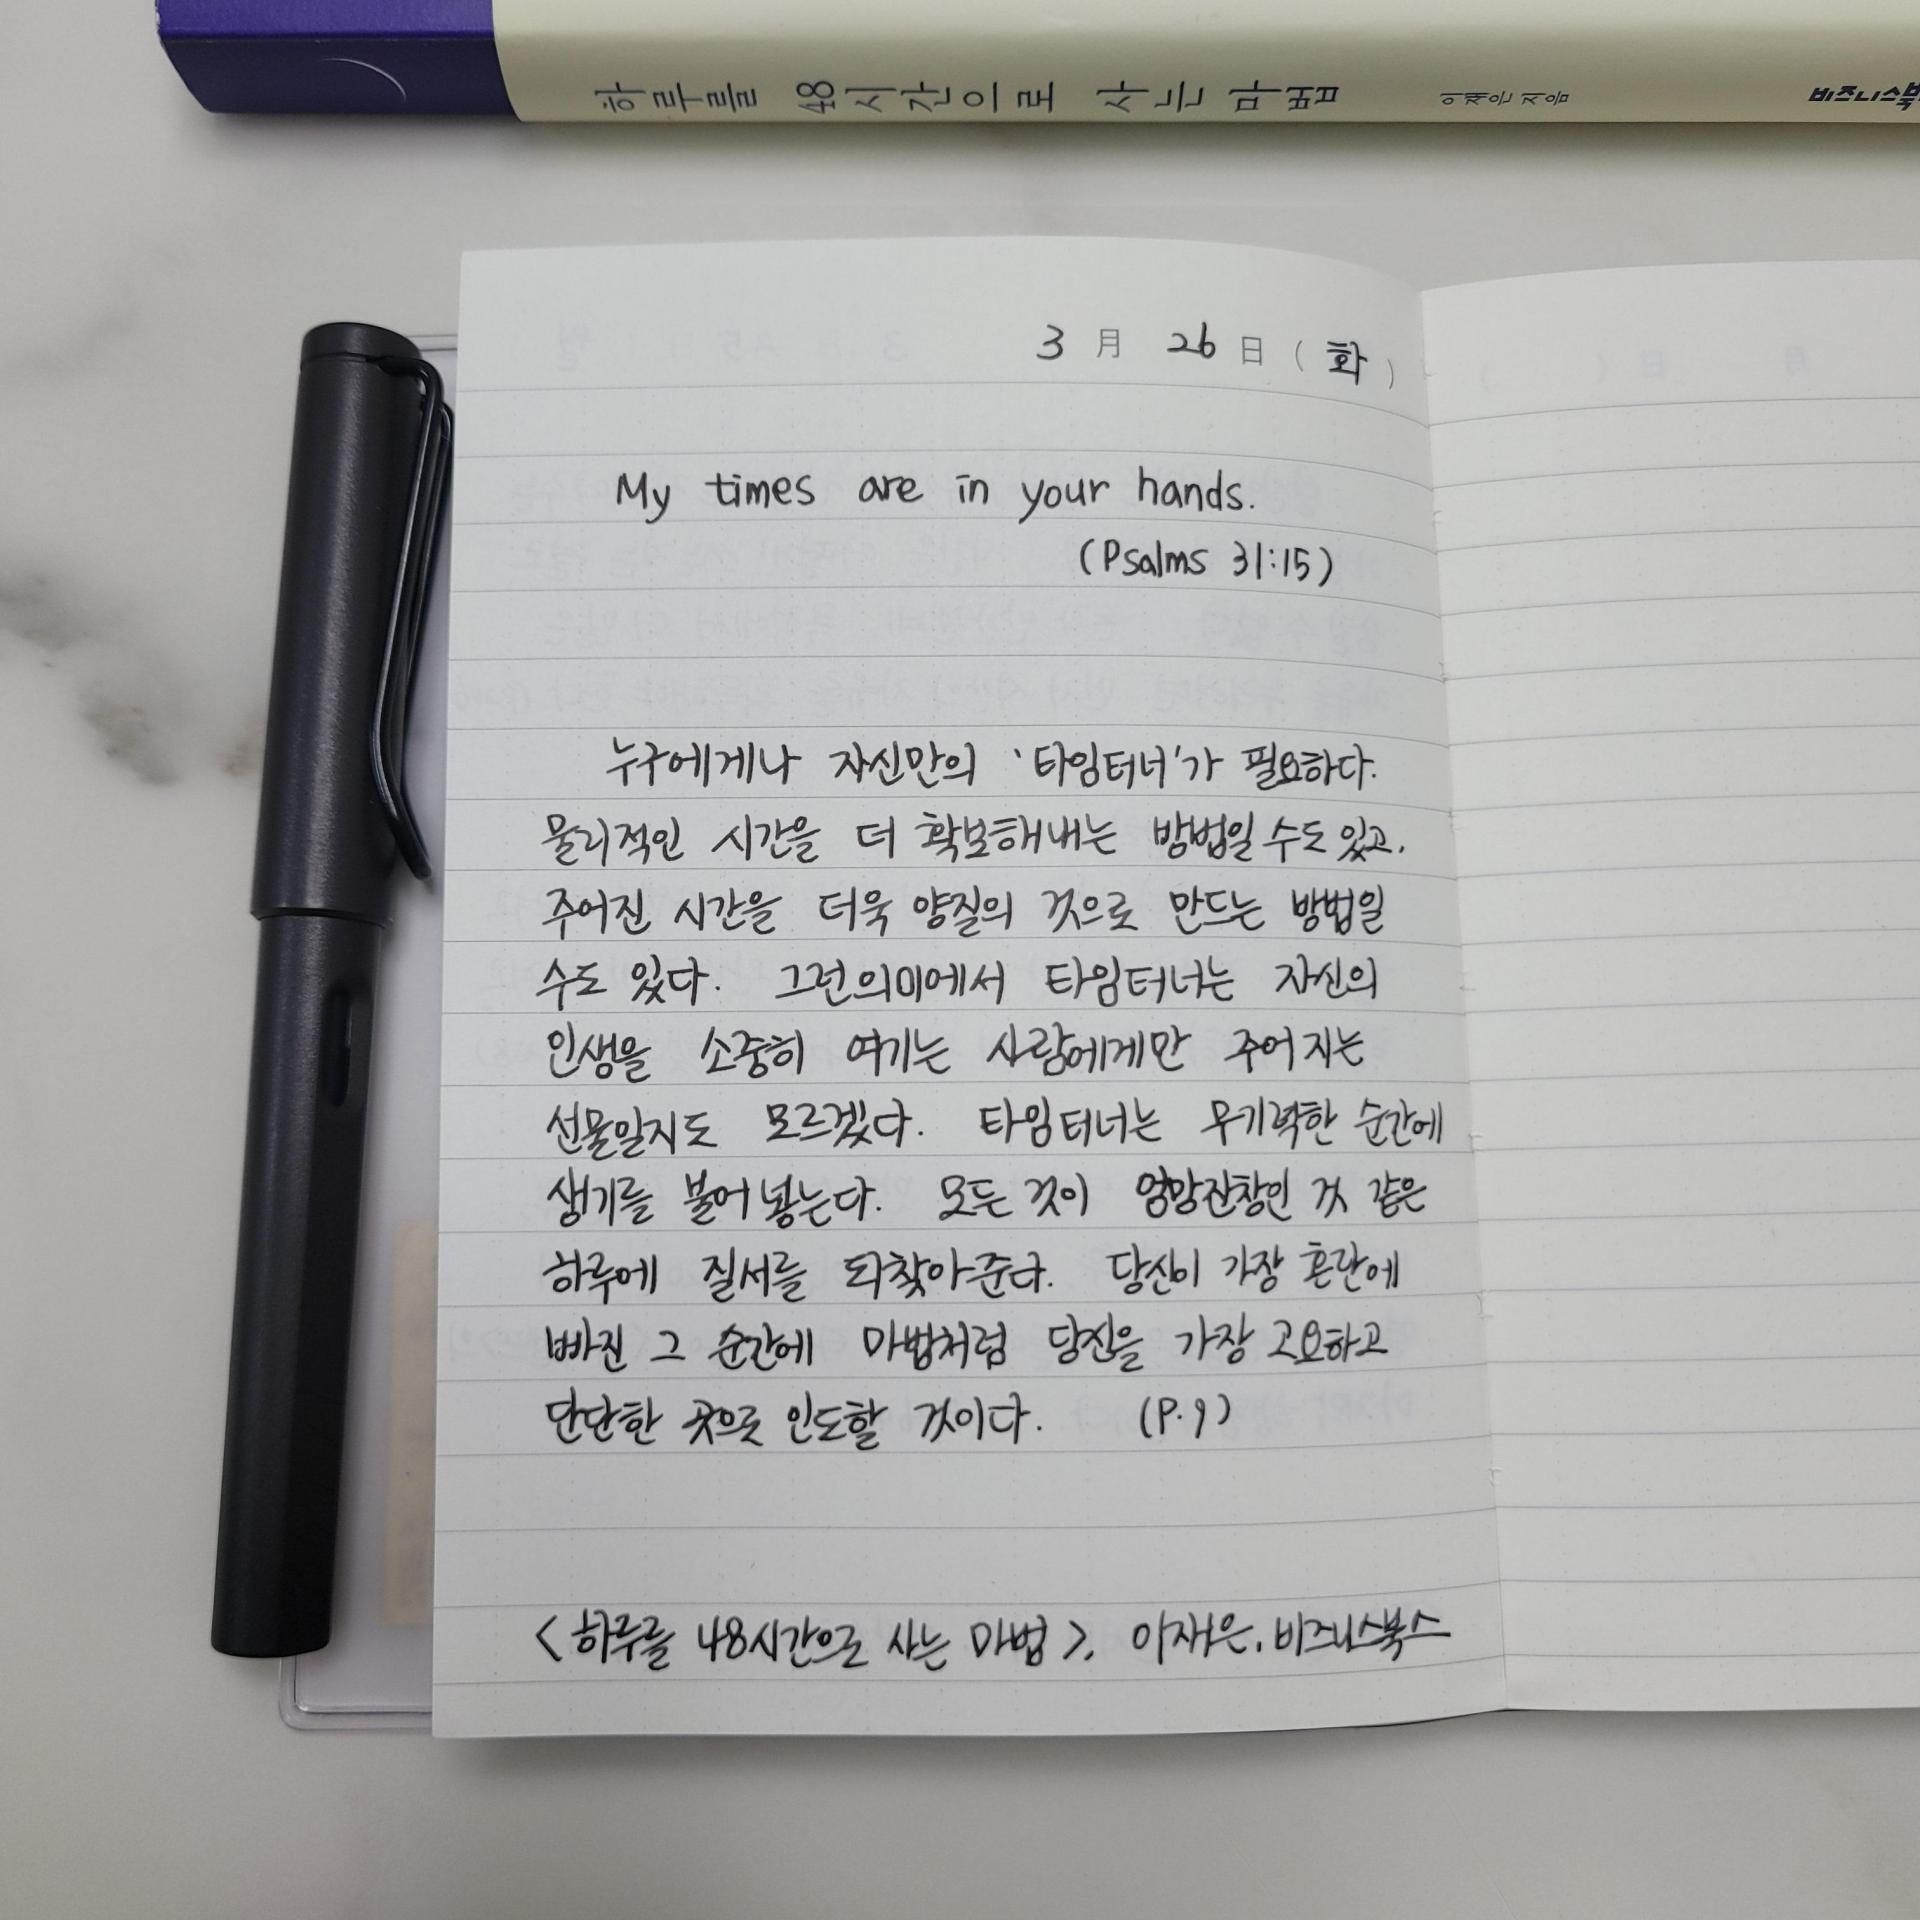 하루를 48시간으로 사는 마법 이재은 지음 비즈니스북
3 月 26 日 (화)
My times are in your hands.
(Psalms 31:15)
누구에게나 자신만의 '타임터너'가 필요하다.
물리적인 시간을 더 확보해내는 방법일 수도 있고,
주어진 시간을 더욱 양질의 것으로 만드는 방법일
수도 있다. 그런 의미에서 타임터너는 자신의
인생을 소중히 여기는 사람에게만 주어지는
선물일지도 모르겠다. 타임터너는 무기력한 순간에
생기를 불어넣는다. 모든 것이 엉망진창인 것 같은
하루에 질서를 되찾아준다. 당신이 가장 혼란에
빠진 그 순간에 마법처럼 당신을 가장 고요하고
단단한 곳으로 인도할 것이다. (P.9)
<하루를 48시간으로 사는 마법>, 이재은, 비즈니스북스